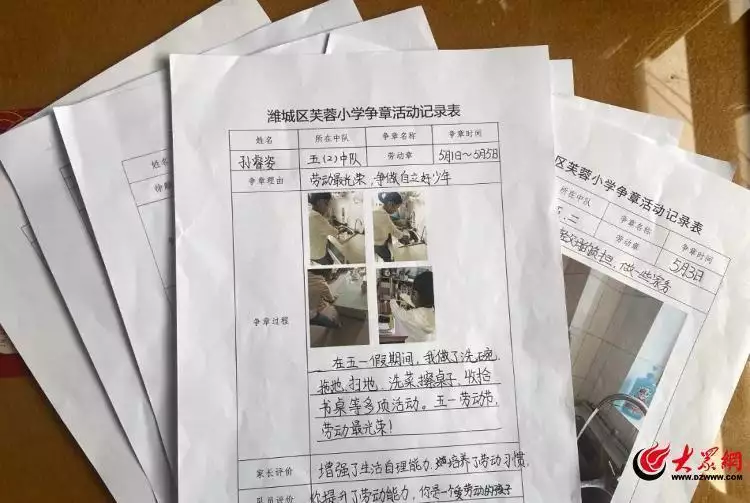 潍城区芙蓉小学争章活动记录表
姓名 所在中队 争章名称 争章时间
孙睿姿 五(2)中队 劳动章 5月1日~5月5日
争章理由 劳动最光荣,争做自立好少年
争章过程
在五一假期间,我做了洗碗、
拖地、扫地、洗菜、擦桌子、收拾
书桌等多项活动。五一劳动节,
劳动最光荣!
家长评价 增强了生活自理能力,培养了劳动习惯,
队员评价 你提升了劳动能力,你是一个爱劳动的孩子
区芙蓉小学争章活动记录表
所在中队 争章名称 争章时间
五.二 劳动章 5月3日
做一些家务
大众網
WWW.DZWWW.COM